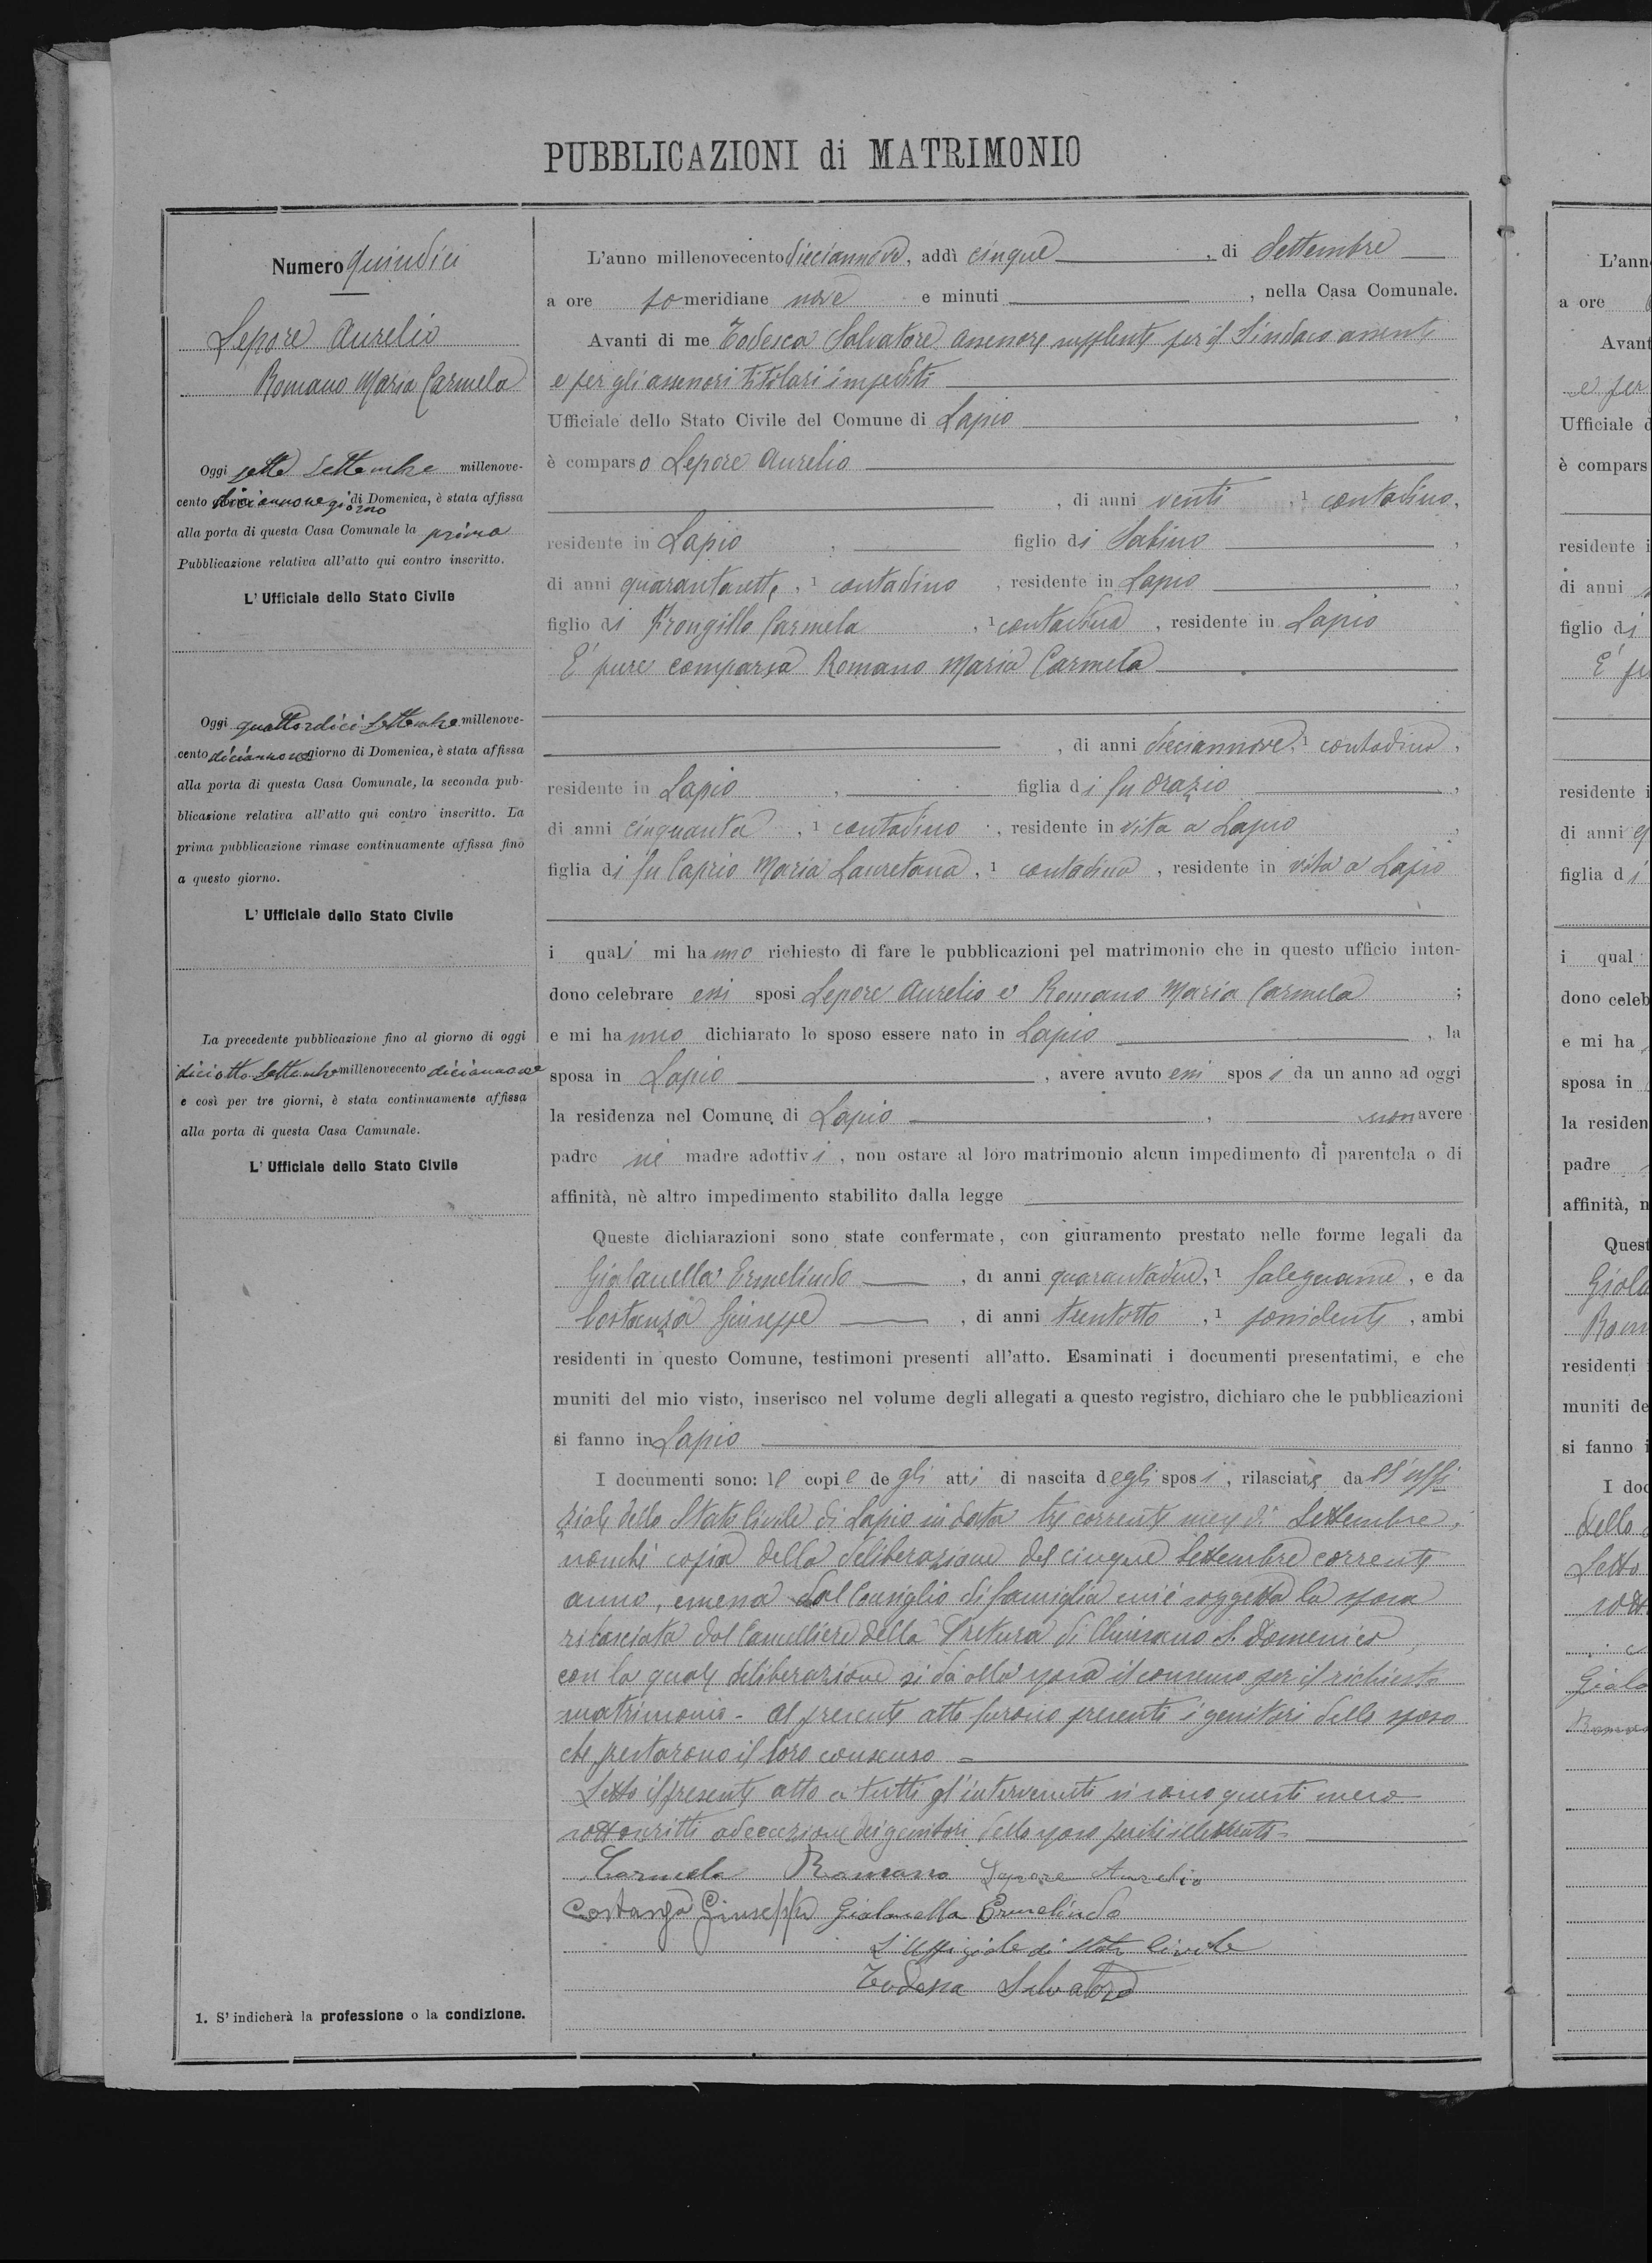 PUBBLICAZIONI di MATRIMONIO
Numero quindici
Lepore Aurelio
Romano Maria Carmela
Oggi sette Settembre millenove-
cento diciannove giorno di Domenica, è stata affissa
alla porta di questa Casa Comunale la prima
Pubblicazione relativa all'atto qui contro inscritto.
L'Ufficiale dello Stato Civile
Oggi quattordici Settembre millenove-
cento diciannove giorno di Domenica, è stata affissa
alla porta di questa Casa Comunale, la seconda pub-
blicazione relativa all'atto qui contro inscritto. La
prima pubblicazione rimase continuamente affissa fino
a questo giorno.
L'Ufficiale dello Stato Civile
La precedente pubblicazione fino al giorno di oggi
diciotto Settembre millenovecento diciannove
e così per tre giorni, è stata continuamente affissa
alla porta di questa Casa Camunale.
L'Ufficiale dello Stato Civile
1. S'indicherà la professione o la condizione.
L'anno millenovecento dieciannove, addì cinque, di Settembre
a ore meridiane nove e minuti , nella Casa Comunale.
Avanti di me Todesca Salvatore assessore supplente per il Sindaco assente
e per gli assessori titolari impediti
Ufficiale dello Stato Civile del Comune di Lapio,
è comparso Lepore Aurelio
, di anni venti, 1 contadino,
residente in Lapio, figlio di Sabino,
di anni quarantasette, 1 contadino, residente in Lapio,
figlio di Frongillo Carmela, 1 contadina, residente in Lapio
E' pure comparsa Romano Maria Carmela
, di anni dieciannove, 1 contadina,
residente in Lapio, figlia di fu Orazio,
di anni cinquanta, 1 contadino, residente in vita a Lapio,
figlia di fu Caprio Maria Lauretana, 1 contadina, residente in vita a Lapio
i quali mi hanno richiesto di fare le pubblicazioni pel matrimonio che in questo ufficio inten-
dono celebrare essi sposi Lepore Aurelio e Romano Maria Carmela;
e mi hanno dichiarato lo sposo essere nato in Lapio, la
sposa in Lapio, avere avuto essi sposi da un anno ad oggi
la residenza nel Comune di Lapio, non avere
padre nè madre adottivi, non ostare al loro matrimonio alcun impedimento di parentela o di
affinità, nè altro impedimento stabilito dalla legge
Queste dichiarazioni sono state confermate, con giuramento prestato nelle forme legali da
Gialanella Ermelindo, di anni quarantadue, 1 falegname, e da
Costanza Giuseppe, di anni trentotto, 1 possidente, ambi
residenti in questo Comune, testimoni presenti all'atto. Esaminati i documenti presentatimi, e che
muniti del mio visto, inserisco nel volume degli allegati a questo registro, dichiaro che le pubblicazioni
si fanno in Lapio
I documenti sono: le copie degli atti di nascita degli sposi, rilasciate dall'uffi
ziale dello Stato Civile di Lapio in data tre corrente mese di Settembre,
nonchè copia della deliberazione del cinque Settembre corrente
anno, emessa dal Consiglio di famiglia cui è soggetta la sposa
rilasciata dal Cancelliere della Pretura di Chiusano S. Domenico,
con la quale deliberazione si dà alla sposa il consenso per il richiesto
matrimonio - Al presente atto furono presenti i genitori dello sposo
che prestarono il loro consenso -
Letto il presente atto a tutti gl'intervenuti si sono questi meco
sottoscritti ad eccezione dei genitori dello sposo perchè illetterati -
Carmela Romano Lepore Aurelio
Costanza Giuseppe Gialanella Ermelindo
L'Uffiziale di Stato Civile
Todesca Salvatore
L'ann
a ore
Avant
e per
Ufficiale d
è compars
residente i
di anni
figlio di
E' pu
residente i
di anni
figlia di
i qual
dono celeb
e mi ha
sposa in
la residen
padre
affinità, n
Quest
Giala
Rom
residenti
muniti de
si fanno i
I doc
dello
Letto
sott
Giala